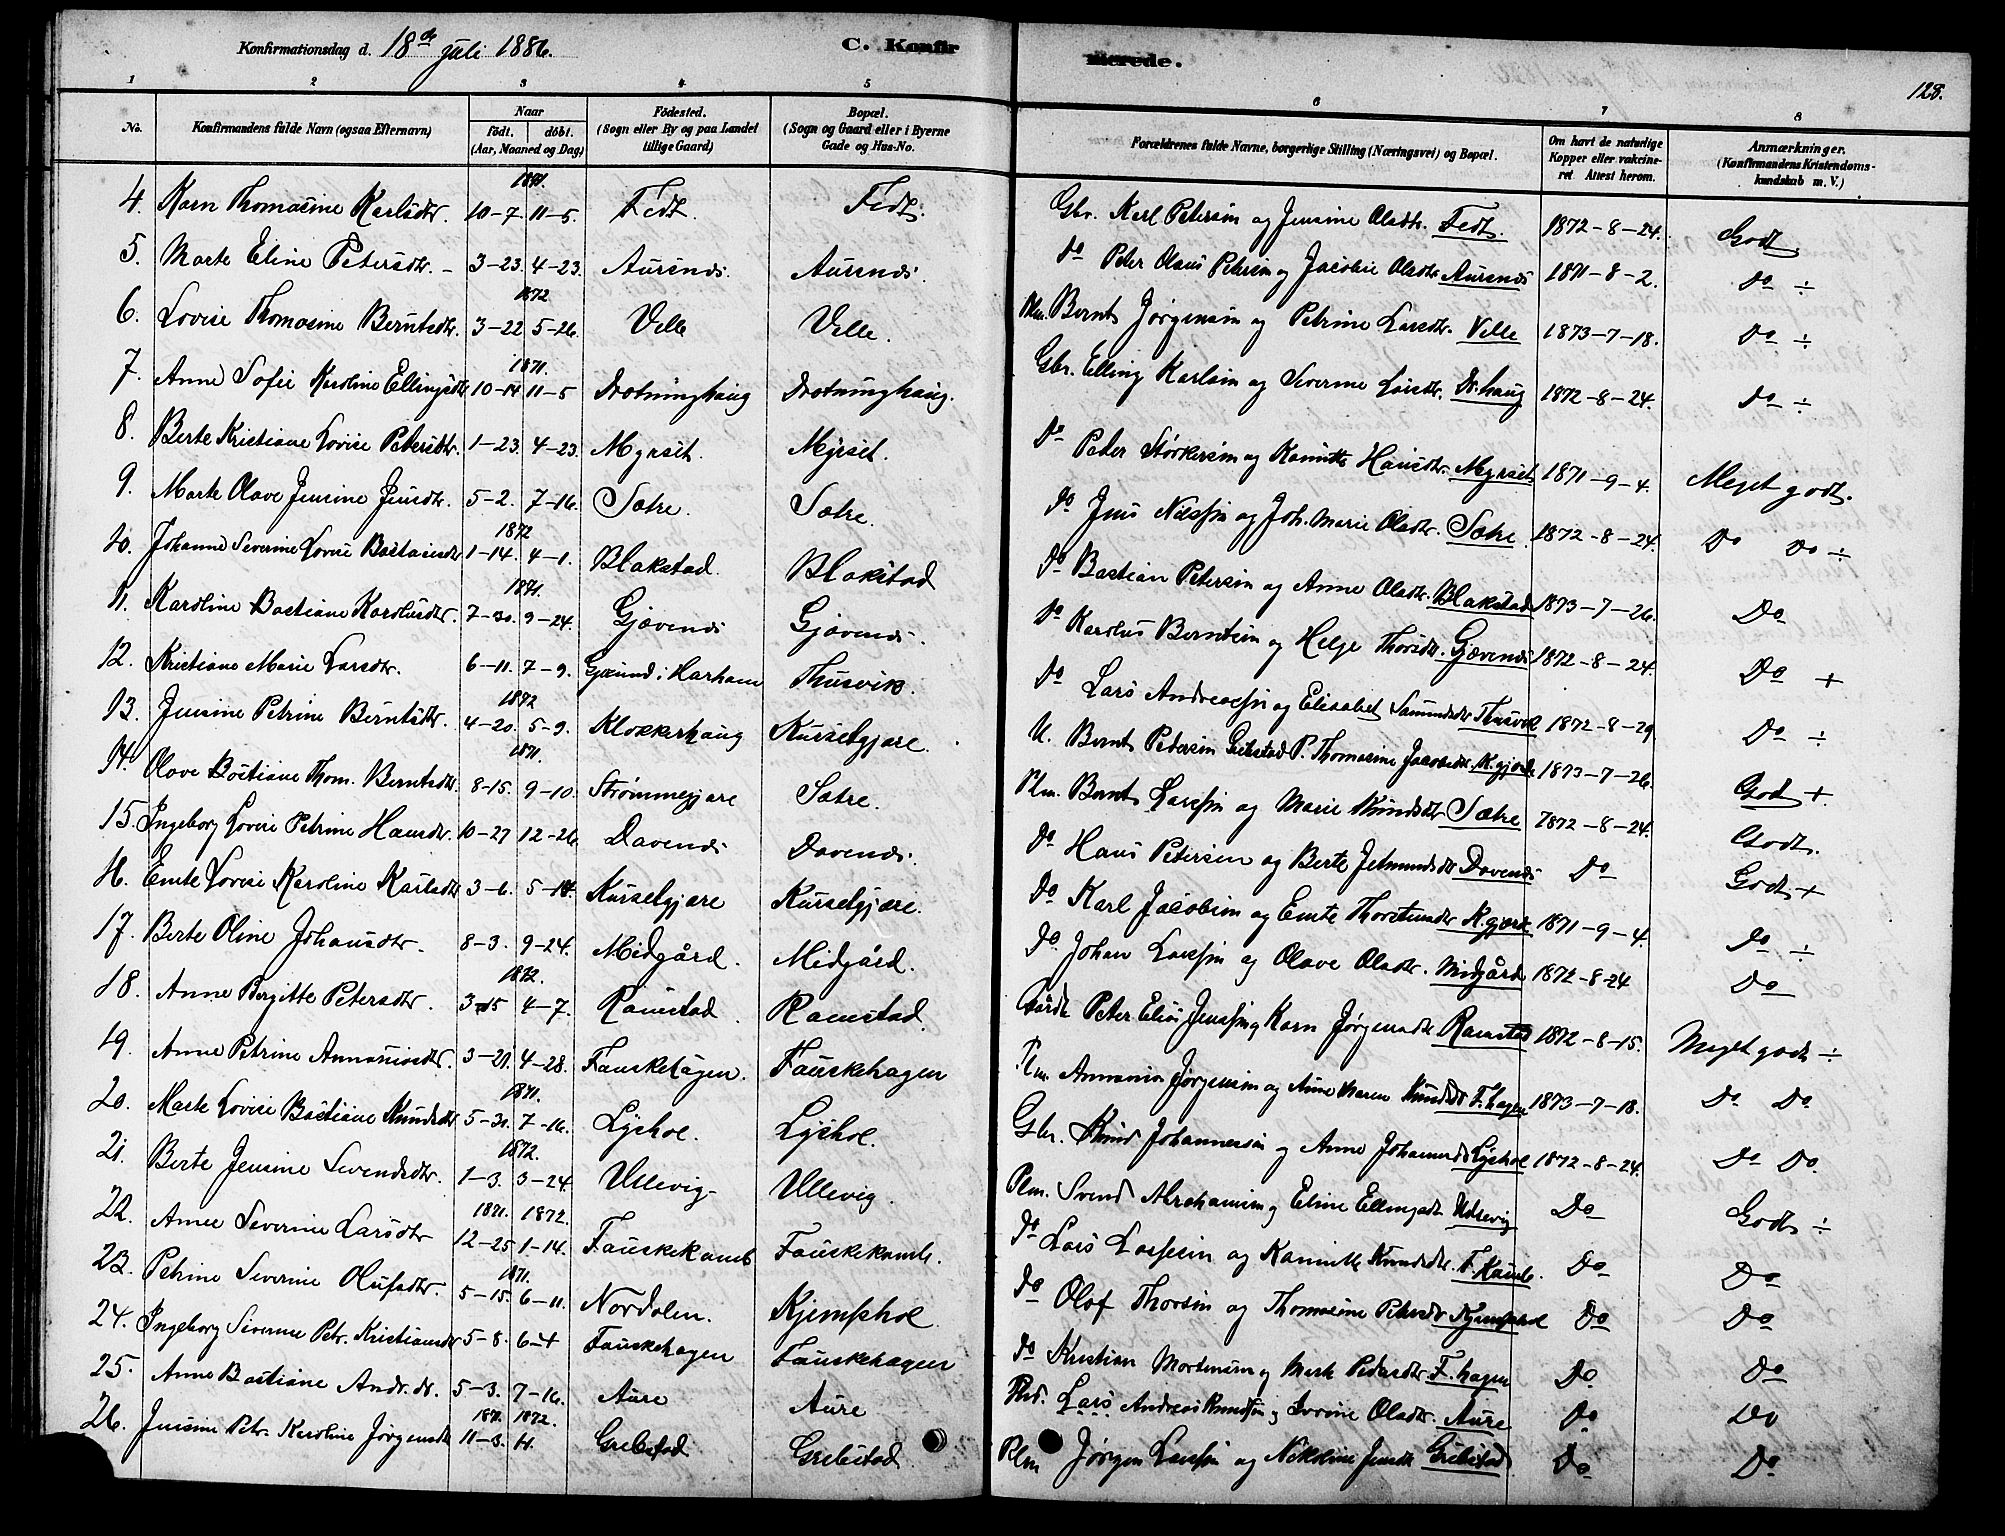 Konfirmationsdag d. 18de juli 1886. C. Konfirmerede. 128.
1 2 3 4 5 6 7 8
No. Konfirmandens fulde Navn (ogsaa Efternavn) Naar født. døbt. (Aar, Maaned og Dag) Fødested. (Sogn eller By og paa Landet tillige Gaard) Bopæl. (Sogn og Gaard eller i Byerne Gade og Hus-No. Forældrenes fulde Navne, borgerlige Stilling (Næringsvei) og Bopæl. Om havt de naturlige Kopper eller vakcineret. Attest herom. Anmærkninger. (Konfirmandens Kristendomskundskab m. V.)
1871.
4. Karn Thomasine Karlsdtr. 10-7. 11-5. Fedt. Fedt. Gbr. Karl Petersen og Jensine Olsdtr. Fedt. 1872-8-24. Godt
5. Marte Eline Petersdtr. 3-23. 4-23. Aursnes. Aursnes. Do Peter Olaus Petersen og Jacobie Olsdtr. Aursnes 1871-8-2. Do ÷
1872
6. Lovise Thomasine Berntsdtr. 3-22 5-26. Velle Velle. Plm. Bernt Jørgensen og Petrine Larsdtr. Velle 1873-7-18. Do ÷
1871.
7. Anne Sofie Karoline Ellingsdtr 10-14 11-5 Drotninghaug Drotninghaug. Gbr. Elling Karlsen og Severine Larsdtr. Dr.haug 1872-8-24. Do ÷
8. Berte Kristiane Lovise Petersdtr. 1-23. 4-23. Myrset. Myrset. Do Peder Størkersen og Kanutte Hansdtr. Myrset 1871-9-4. Meget godt.
9. Marte Olave Jensine Jensdtr. 5-2. 7-16. Sætre. Sætre. Do Jens Nilssen og Joh. Marie Olsdtr. Sætre. 1872-8-24. Do Do ÷
1872
10. Johanne Severine Lovise Bastiansdtr 1-14. 4-1. Blakstad. Blakstad Do Bastian Petersen og Anne Olsdtr. Blakstad 1873-7-26. Do
1871.
11. Karoline Bastiane Karolusdtr. 7-30. 9-24. Gjævenes Gjævenes. Do Karolus Berntsen og Helge Thorsdtr. Gjævenes 1872-8-24. Do +
12. Kristiane Marie Larsdtr. 6-11. 7-9. i Harham Thusvik. Do Lars Andreassen og Elisabet Thusvik 1872-8-29 Do ÷
1872
13. Jensine Petrine Berntsdtr. 4-20. 5-9. Klokkerhaug Kurselgjære. U. Bernt Pedersen Grebstad P. Thomasine Jacobsdtr. K.gjære 1873-7-26. Godt +.
1871.
14. Olave Bastiane Thom. Berntsdtr. 8-15. 9-10. Strømmegjære Sætre. Plm. Bernt Larssen og Marie Knudsdtr Sætre 1872-8-24. Godt.
15. Ingeborg Lovise Petrine Hansdtr. 10-27 12-26. Davenes Davenes. Do Hans Petersen og Berte Jetmundsdtr Davenes Do Godt +
16. Emte Lovise Karoline Karlsdtr 3-6. 5-14. Kurselgjære Kurselgjære. Do Karl Jacobsen og Emte Thorstensdtr K.gjære 1871-9-4. Do ÷
17. Berte Oline Johansdtr. 8-3. 9-24. Midgård. Midgård. Do. Johan Larssen og Olave Olsdtr. Midgård 1872-8-24 Do
1872.
18. Anne Bergitte Petersdtr. 3-15 4-7. Ramstad. Ramstad. Peter Elias Jenssen og Karn Jørgensdtr Ramstad 1872-8-15. Meget godt ÷
19. Anne Petrine Annaniasdtr. 3-21. 4-28. Fauskehagen. Fauskehagen Plm. Annanias Jørgensen og Anne Maren Knudsdtr F.hagen 1873-7-18. Do Do
1871.
20. Marte Lovise Bastiane Knudsdtr 5-31. 7-16. Lyshol. Lyshol. Gbr. Knud Johannessen og Anne Johansdtr Lyshol 1872-8-24. Do Do.
1872.
21. Berte Jensine Svendsdtr. 1-3. 3-24. Ullevig. Ullevig. Plm. Svend Abrahamsen og Eline Ellingsdtr Ullevig Do Godt ÷
1871. 1872.
22. Anne Severine Larsdtr 12-25. 1-14. Fauskekamb Fauskekamb. Do Lars Larssen og Kanutte Knudsdtr. F.Kamb. Do Do
1871.
23. Petrine Severine Olufsdtr. 5-15. 6-11. Nordalen. Kjemphol. Do Olof Thorsen og Thomasine Petersdtr Kjemphol Do Do
24. Ingeborg Severine Petr. Kristiansdtr 5-8. 6-4 Fauskehagen Fauskehagen Do Kristian Mortensen og Marte Pedersdtr. F.hagen Do. Do
25. Anne Bastiane Andr. dr. 5-3. 7-16. Aure Aure Lars Andreas Knudsen og Olsdtr. Aure Do Do
1871. 1872.
26. Jensine Petr. Karoline Jørgensdtr 11-3. Grebstad Grebstad Plm Jørgen Larssen og Nikoline Jensdtr Grebstad Do Do